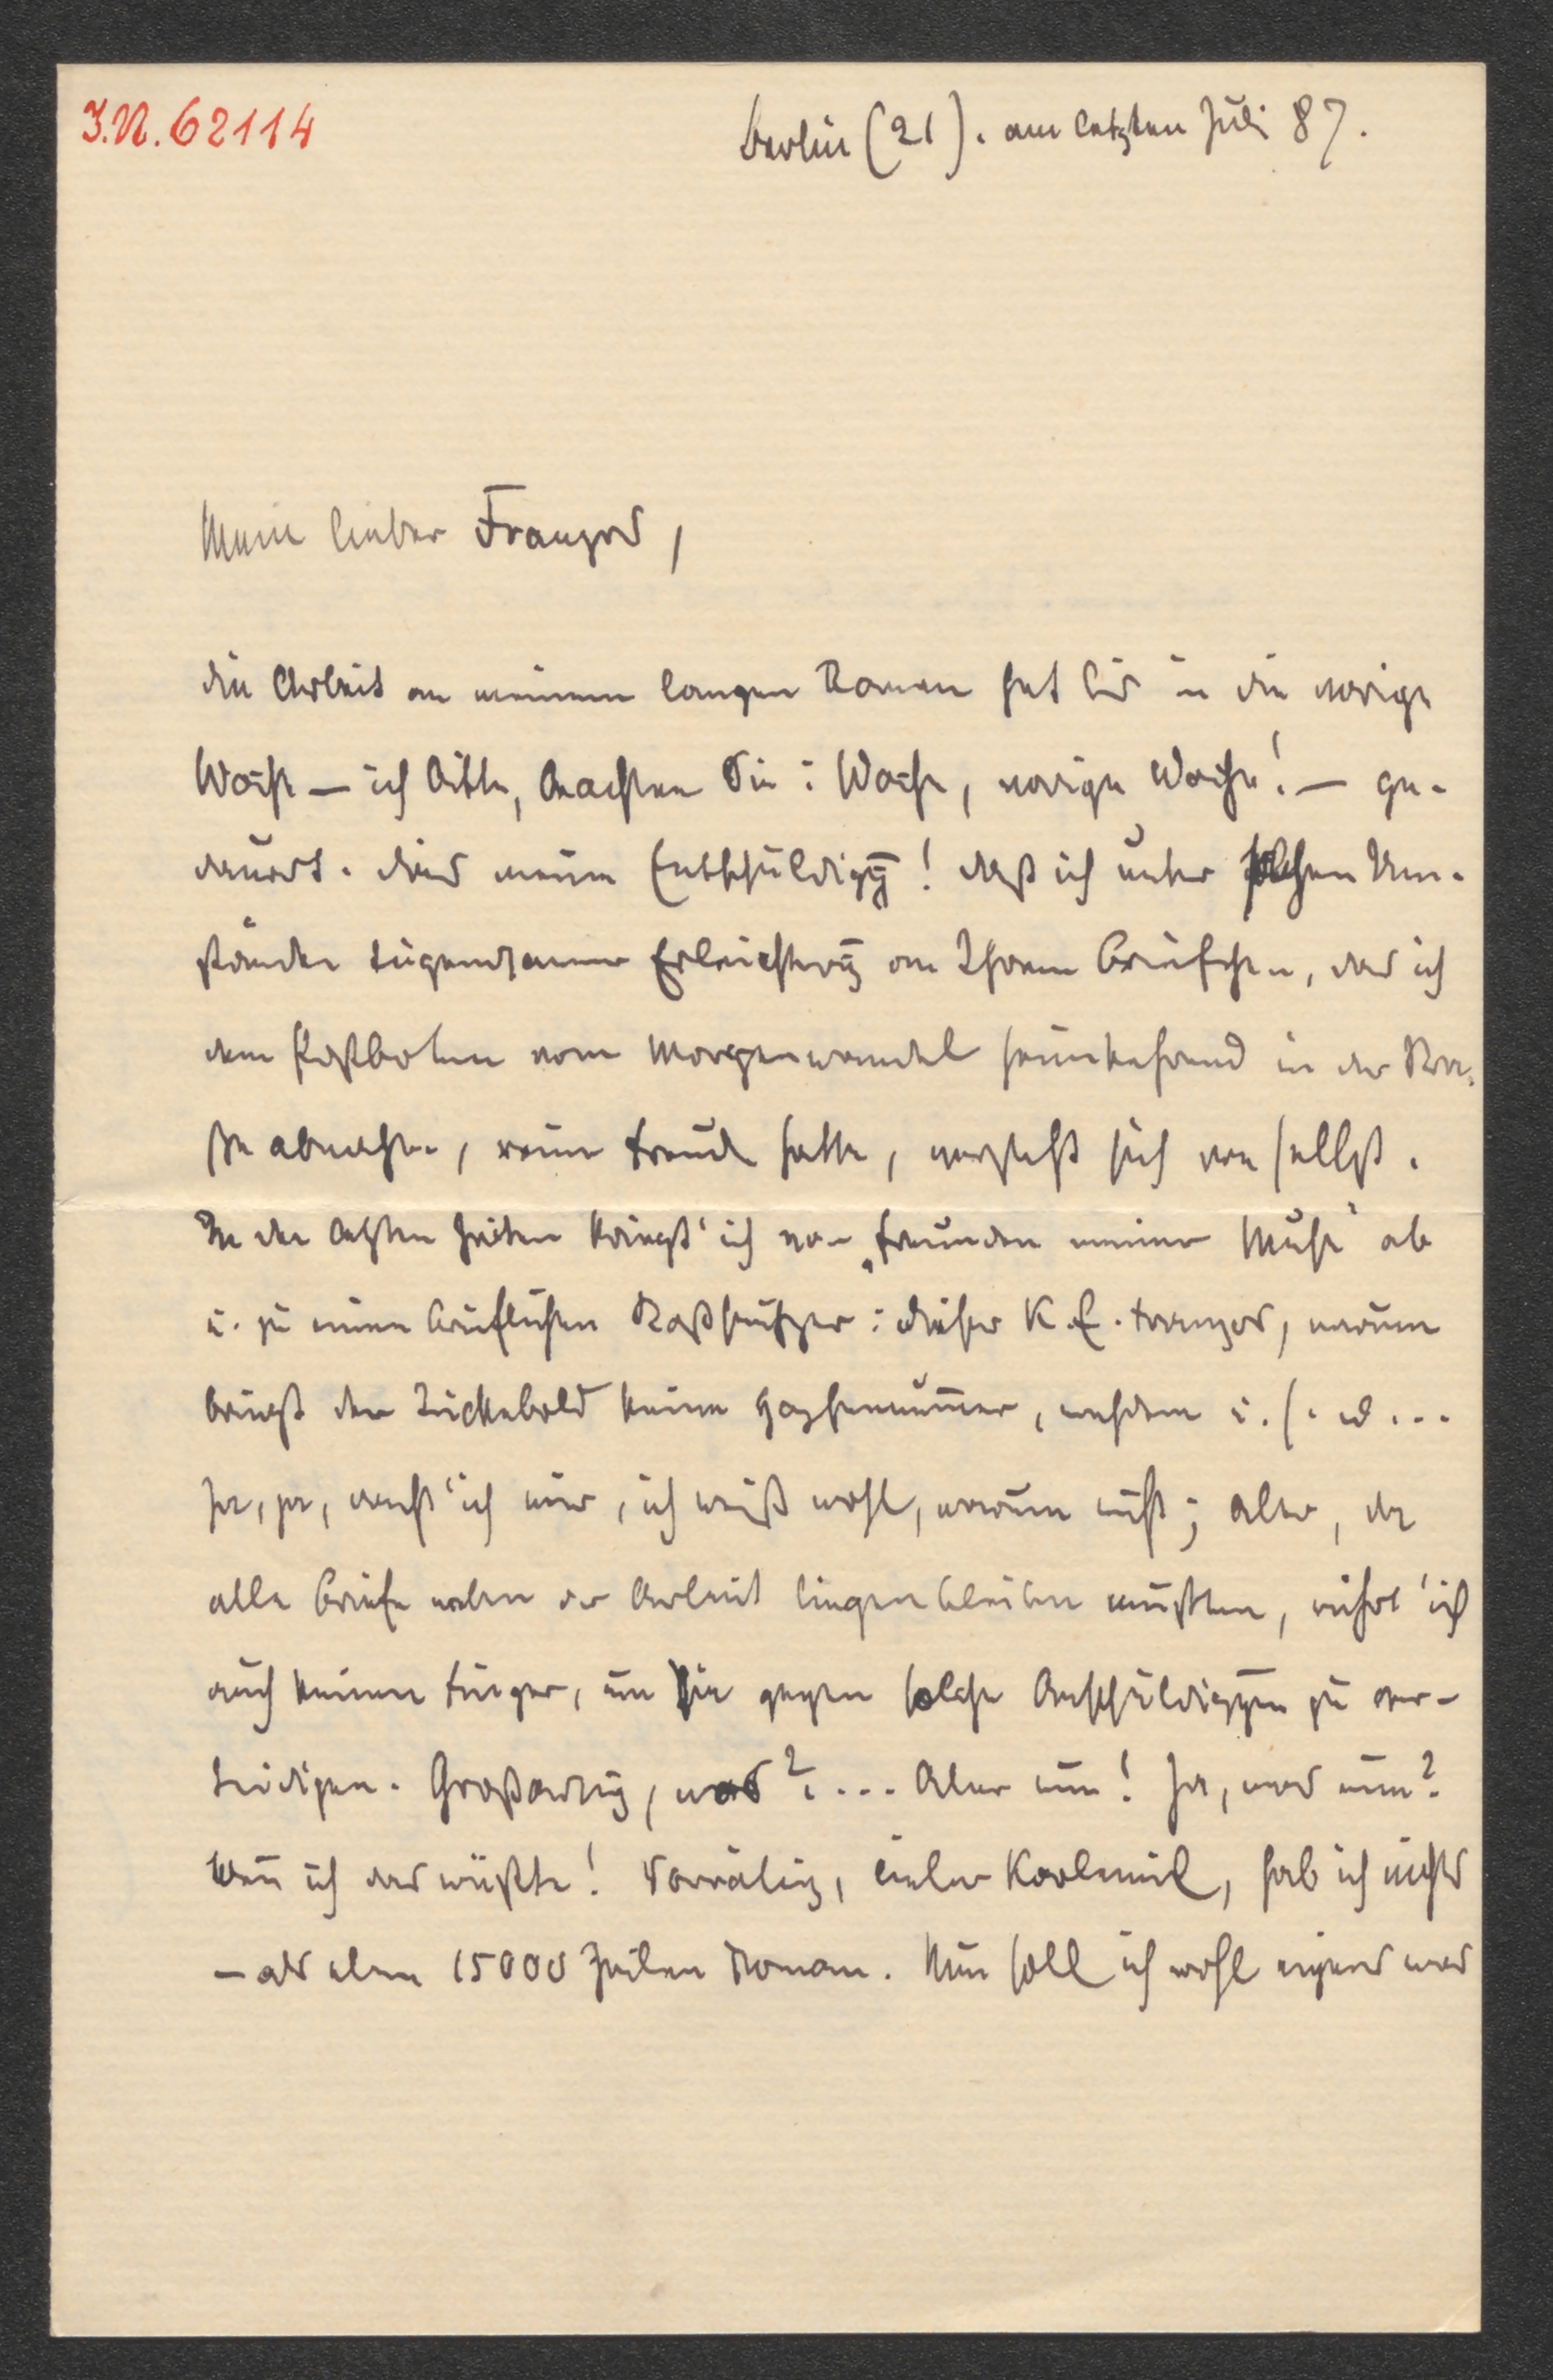 I.N. 62114
Berlin (21). am letzten Juli 87.
Mein lieber Franzos,
die Arbeit an meinem langen Roman hat bis in die vorige
Woche – ich bitte, beachten Sie: Woche, vorige Woche! – ge-
dauert. Dies meine Entschuldigg! Daß ich unter solchen Um-
ständen tugendsamer Erleichterg an Ihrem Briefchen, das ich
dem Postboten vom Morgenwandel heimkehrend in der Stra-
ße abnahm, reine Freude hatte, versteht sich von selbst.
In der letzten Zeiten kriegt' ich von „Freunden meiner Muse" ab
u. zu einen brieflichen: Dieser K. E. Franzos, warum
bringt der Tückebold keine, nachdem u. s. w...
Ja, ja, dacht' ich mir, ich weiß wohl, warum nicht; aber, da
alle Briefe neben der Arbeit liegen bleiben mußten, rührt' ich
auch keinen Finger, um Sie gegen solche Anschuldiggen zu ver-
teidigen. Großartig, was?... Aber nun! Ja, was nun?
Wenn ich das wüßte! Vorrätig, lieber Karlemil, hab ich nichts
– als eben 15000 Zeilen Roman. Nun soll ich wohl eigens was